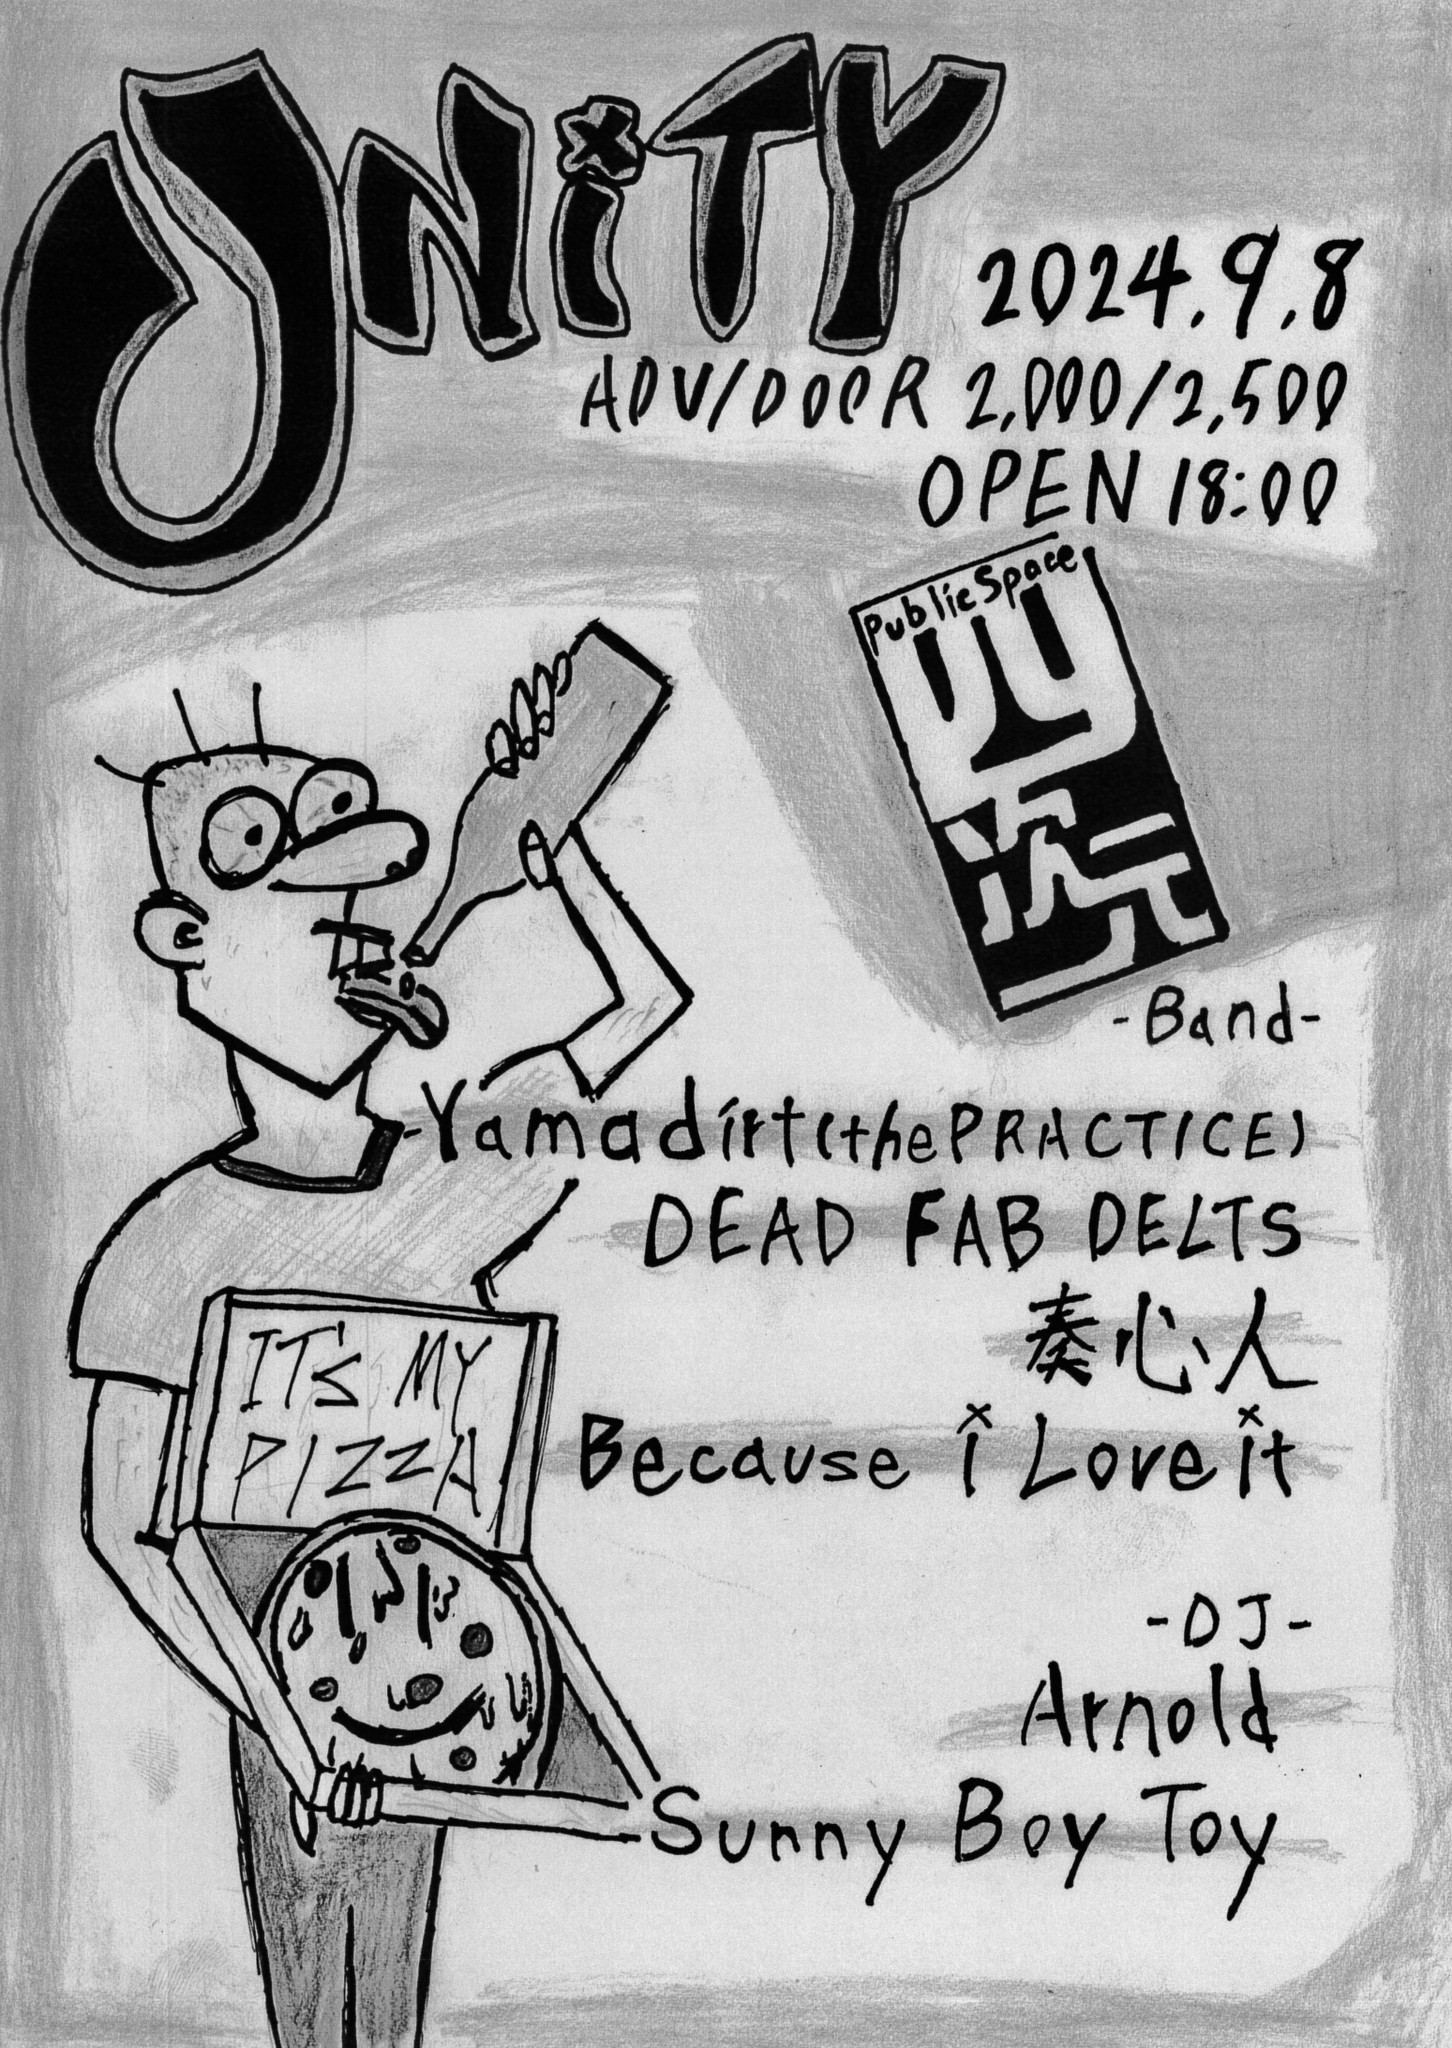 UNiTY
2024.9.8
ADV/DOOR 2,000/2,500
OPEN 18:00
Public Space
四次元
-Band-
-Yamadirt(thePRACTICE)
DEAD FAB DELTS
奏心人
Because i Love it
IT'S MY
PIZZA
-DJ-
Arnold
Sunny Boy Toy